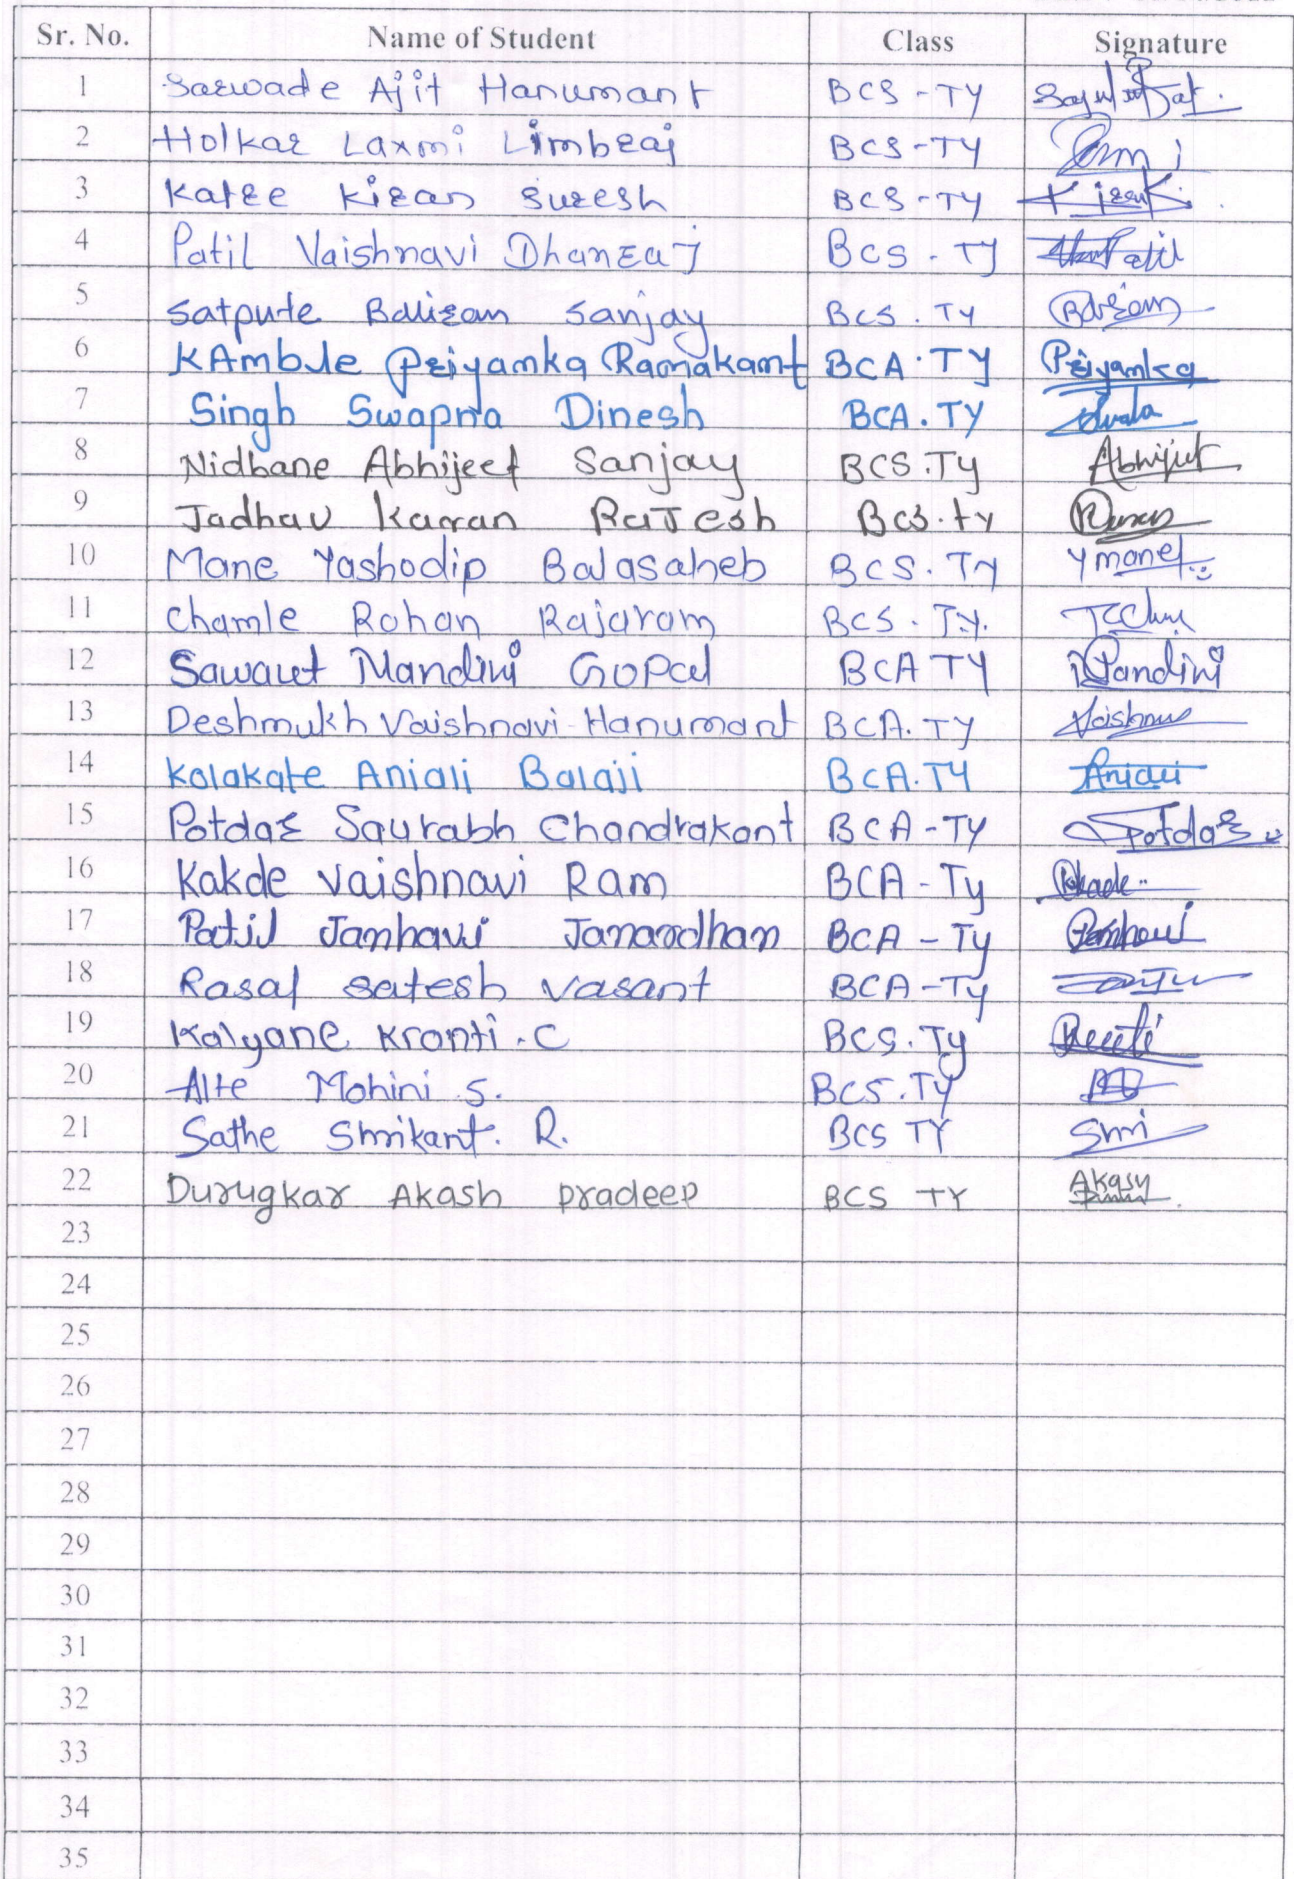 Sr. No. Name of Student Class Signature
1 Sarwade Ajit Hanumant BCS-TY
2 Holkar Laxmi Limbraj BCS-TY
3 Katre Kiran Suresh BCS-TY Kiran K.
4 Patil Vaishnavi Dhanraj BCS.TY Patil
5 Satpute Baliram Sanjay BCS.TY
6 KAmble Priyamka Ramakant BCA.TY Priyamka
7 Singh Swapna Dinesh BCA.TY
8 Nidbane Abhijeet Sanjay BCS.Ty Abhijeet
9 Jadhav Karan RaJesh Bcs.ty
10 Mane Yashodip Balasaheb BCS.TY Ymane
11 Chamle Rohan Rajaram BCS.TY.
12 Sawant Nandini Gopal BCA TY Nandini
13 Deshmukh Vaishnavi Hanumant BCA.TY Vaishnavi
14 Kolakate Anjali Balaji BCA.TY Anjali
15 Potdar Saurabh Chandrakant BCA-TY Potdar
16 Kakde Vaishnavi Ram BCA-Ty
17 Patil Janhavi Janardhan BCA-Ty Janhavi
18 Rasal Satesh Vasant BCA-Ty
19 Kalyane Kranti.C BCS.Ty
20 Alte Mohini S. BCS.TY
21 Sathe Shrikant. R. BCS TY Shri
22 Durugkar Akash pradeep BCS TY Akash
23
24
25
26
27
28
29
30
31
32
33
34
35